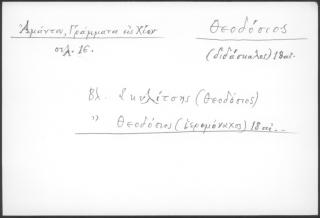 Ἀμάντου, Γράμματα εἰς Χίον
σελ. 16.
Θεοδόσιος
(διδάσκαλος) 18 αἰ.
Βλ. Σκυλίτσης (Θεοδόσιος)
" Θεοδόσιος (ἱερομόναχος) 18 αἰ..